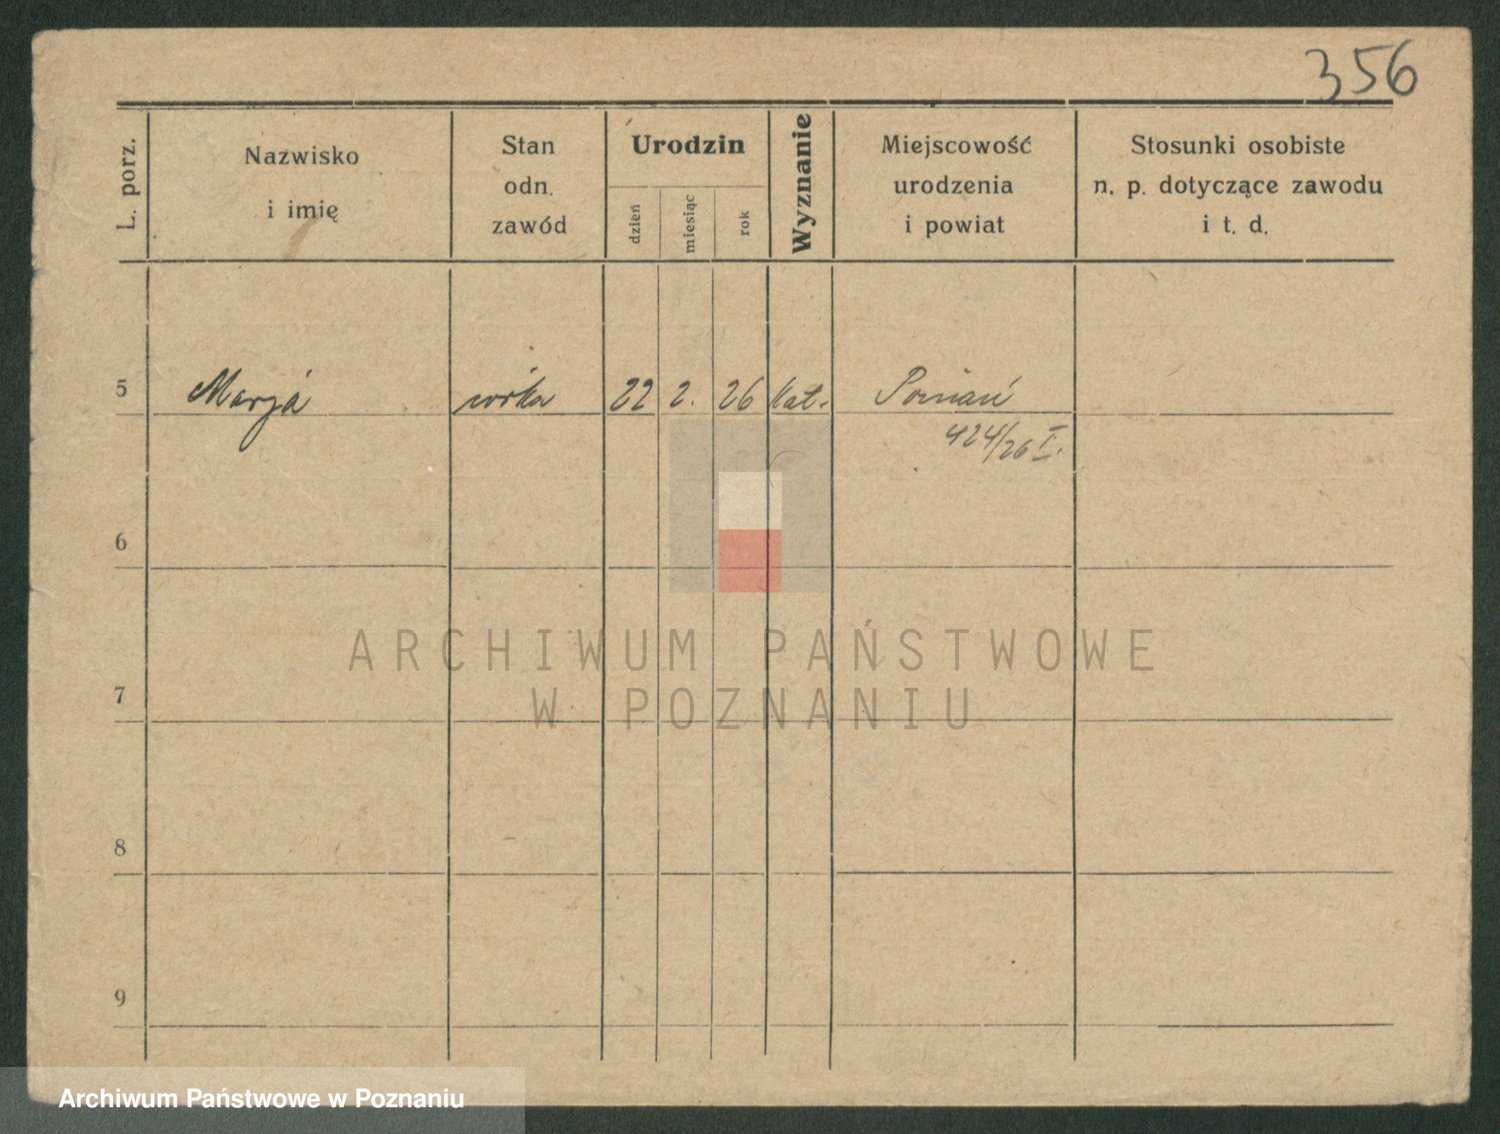 356
L. porz.
Nazwisko
i imię
Stan
odn.
zawód
Urodzin
dzień
miesiąc
rok
Wyznanie
Miejscowość
urodzenia
i powiat
Stosunki osobiste
n. p. dotyczące zawodu
i t. d.
5 Marja córka 22 2. 26 kat. Poznań
424/26 I.
6
ARCHIWUM PAŃSTWOWE
W POZNANIU
7
8
9
Archiwum Państwowe w Poznaniu